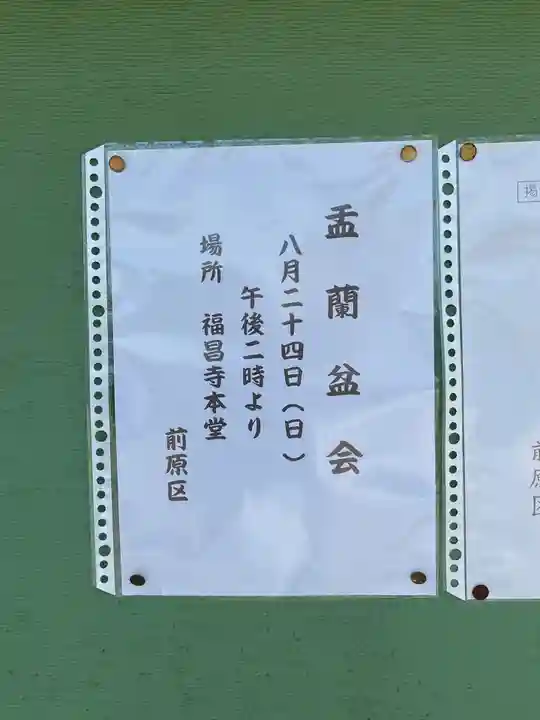 盂蘭盆会
八月二十四日(日)
午後二時より
場所 福昌寺本堂
前原区
掲
前原区